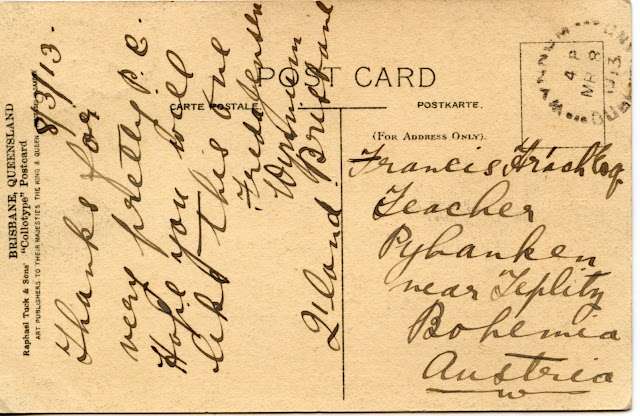 BRISBANE, QUEENSLAND
Raphael Tuck & Sons' "Collotype" Postcard
ART PUBLISHERS TO THEIR MAJESTIES THE KING & QUEEN
8/3/13.
Thanks for
very pretty P.C.
Hope you will
like this one
Freda Jensen
Wynnum
Brisbane
Q'land
POST CARD
CARTE POSTALE.
POSTKARTE.
(FOR ADDRESS ONLY).
WYNNUM
4 P
MR 8
1913
Francis
Teacher
Pyhanken
near Teplitz
Bohemia
Austria